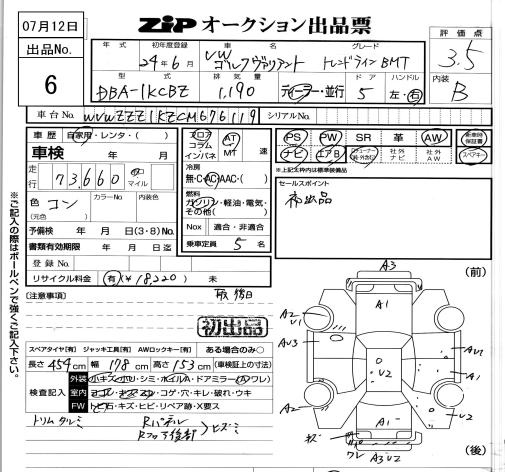 07月12日
ZIP オークション出品票
出品No.
6
評価点
3.5
内装
B
年式 初年度登録 車名 グレード
24年6月 VW ゴルフヴァリアント トレンドライン BMT
型式 排気量 ドア ハンドル
DBA-1KCBZ 1,190 ディーラー・並行 5 左・右
車台No. WVWZZZ1KZCM676119 シリアルNo.
車歴 自家用・レンタ・( )
車検 年 月
走行 73,660 km マイル
色 コン (元色) カラーNo. 内装色
予備検 年 月 日(3・8)No.
書類有効期限 年 月 日迄
登録No.
リサイクル料金 有(¥18,220) 未
フロア コラム インパネ AT MT 速
冷房
無・C・AC・AAC・( )
燃料
ガソリン・軽油・電気・その他( )
Nox 適合・非適合
乗車定員 5 名
PS PW SR 革 AW 新車時保証書
ナビ エアB 社外ナビ 社外AW スペアキー
※上記太枠内は標準装備品
セールスポイント
初出品
※ご記入の際はボールペンで強くご記入下さい。
[注意事項] 後日
初出品
スペアタイヤ[有] ジャッキ工具[有] AWロックキー[有] ある場合のみ○
長さ 454cm 幅 178cm 高さ 153cm (車検証上の寸法)
検査記入
外装 小キズ・小凹・シミ・ホイルA・ドアミラー(A・ワレ)
室内 ヨゴレ・スレ・コゲ・穴・キレ・破れ・ウキ
FW トビ石・キズ・ヒビ・リペア跡・X要ス
トリムタルミ
Rパネル
Rフロア後計 ヒズミ
(前)
A3
A1
A2
U1
AU3
U2
A2
キズ
ワレ
A1
A3U2
A2
AU1
A1
U2
(後)